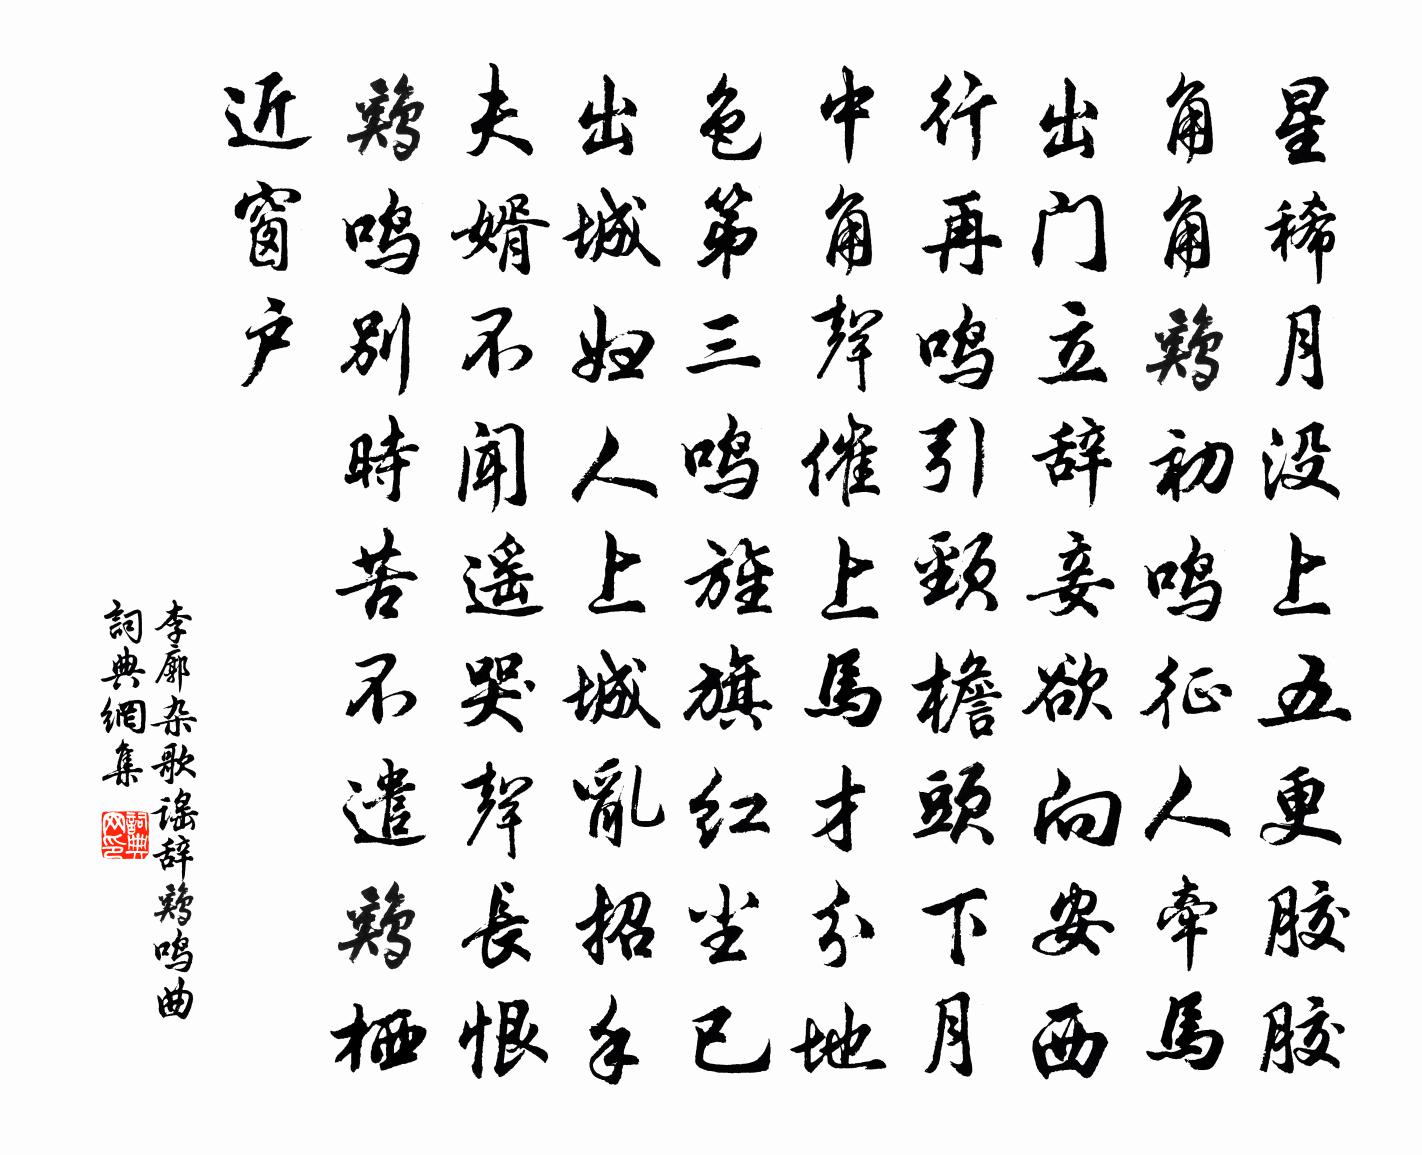 星稀月没上五更胶胶
角角鷄初鸣征人牵馬
出门立辞妾欲向安西
行再鸣引頸檐頭下月
中角聲催上馬才分地
色第三鸣旌旗红尘已
出城妇人上城亂招手
夫婿不闻遥哭聲長恨
鷄鸣别時苦不遣鷄栖
近窗户
李廓杂歌谣辞鷄鸣曲
詞典網集
詞典
网印